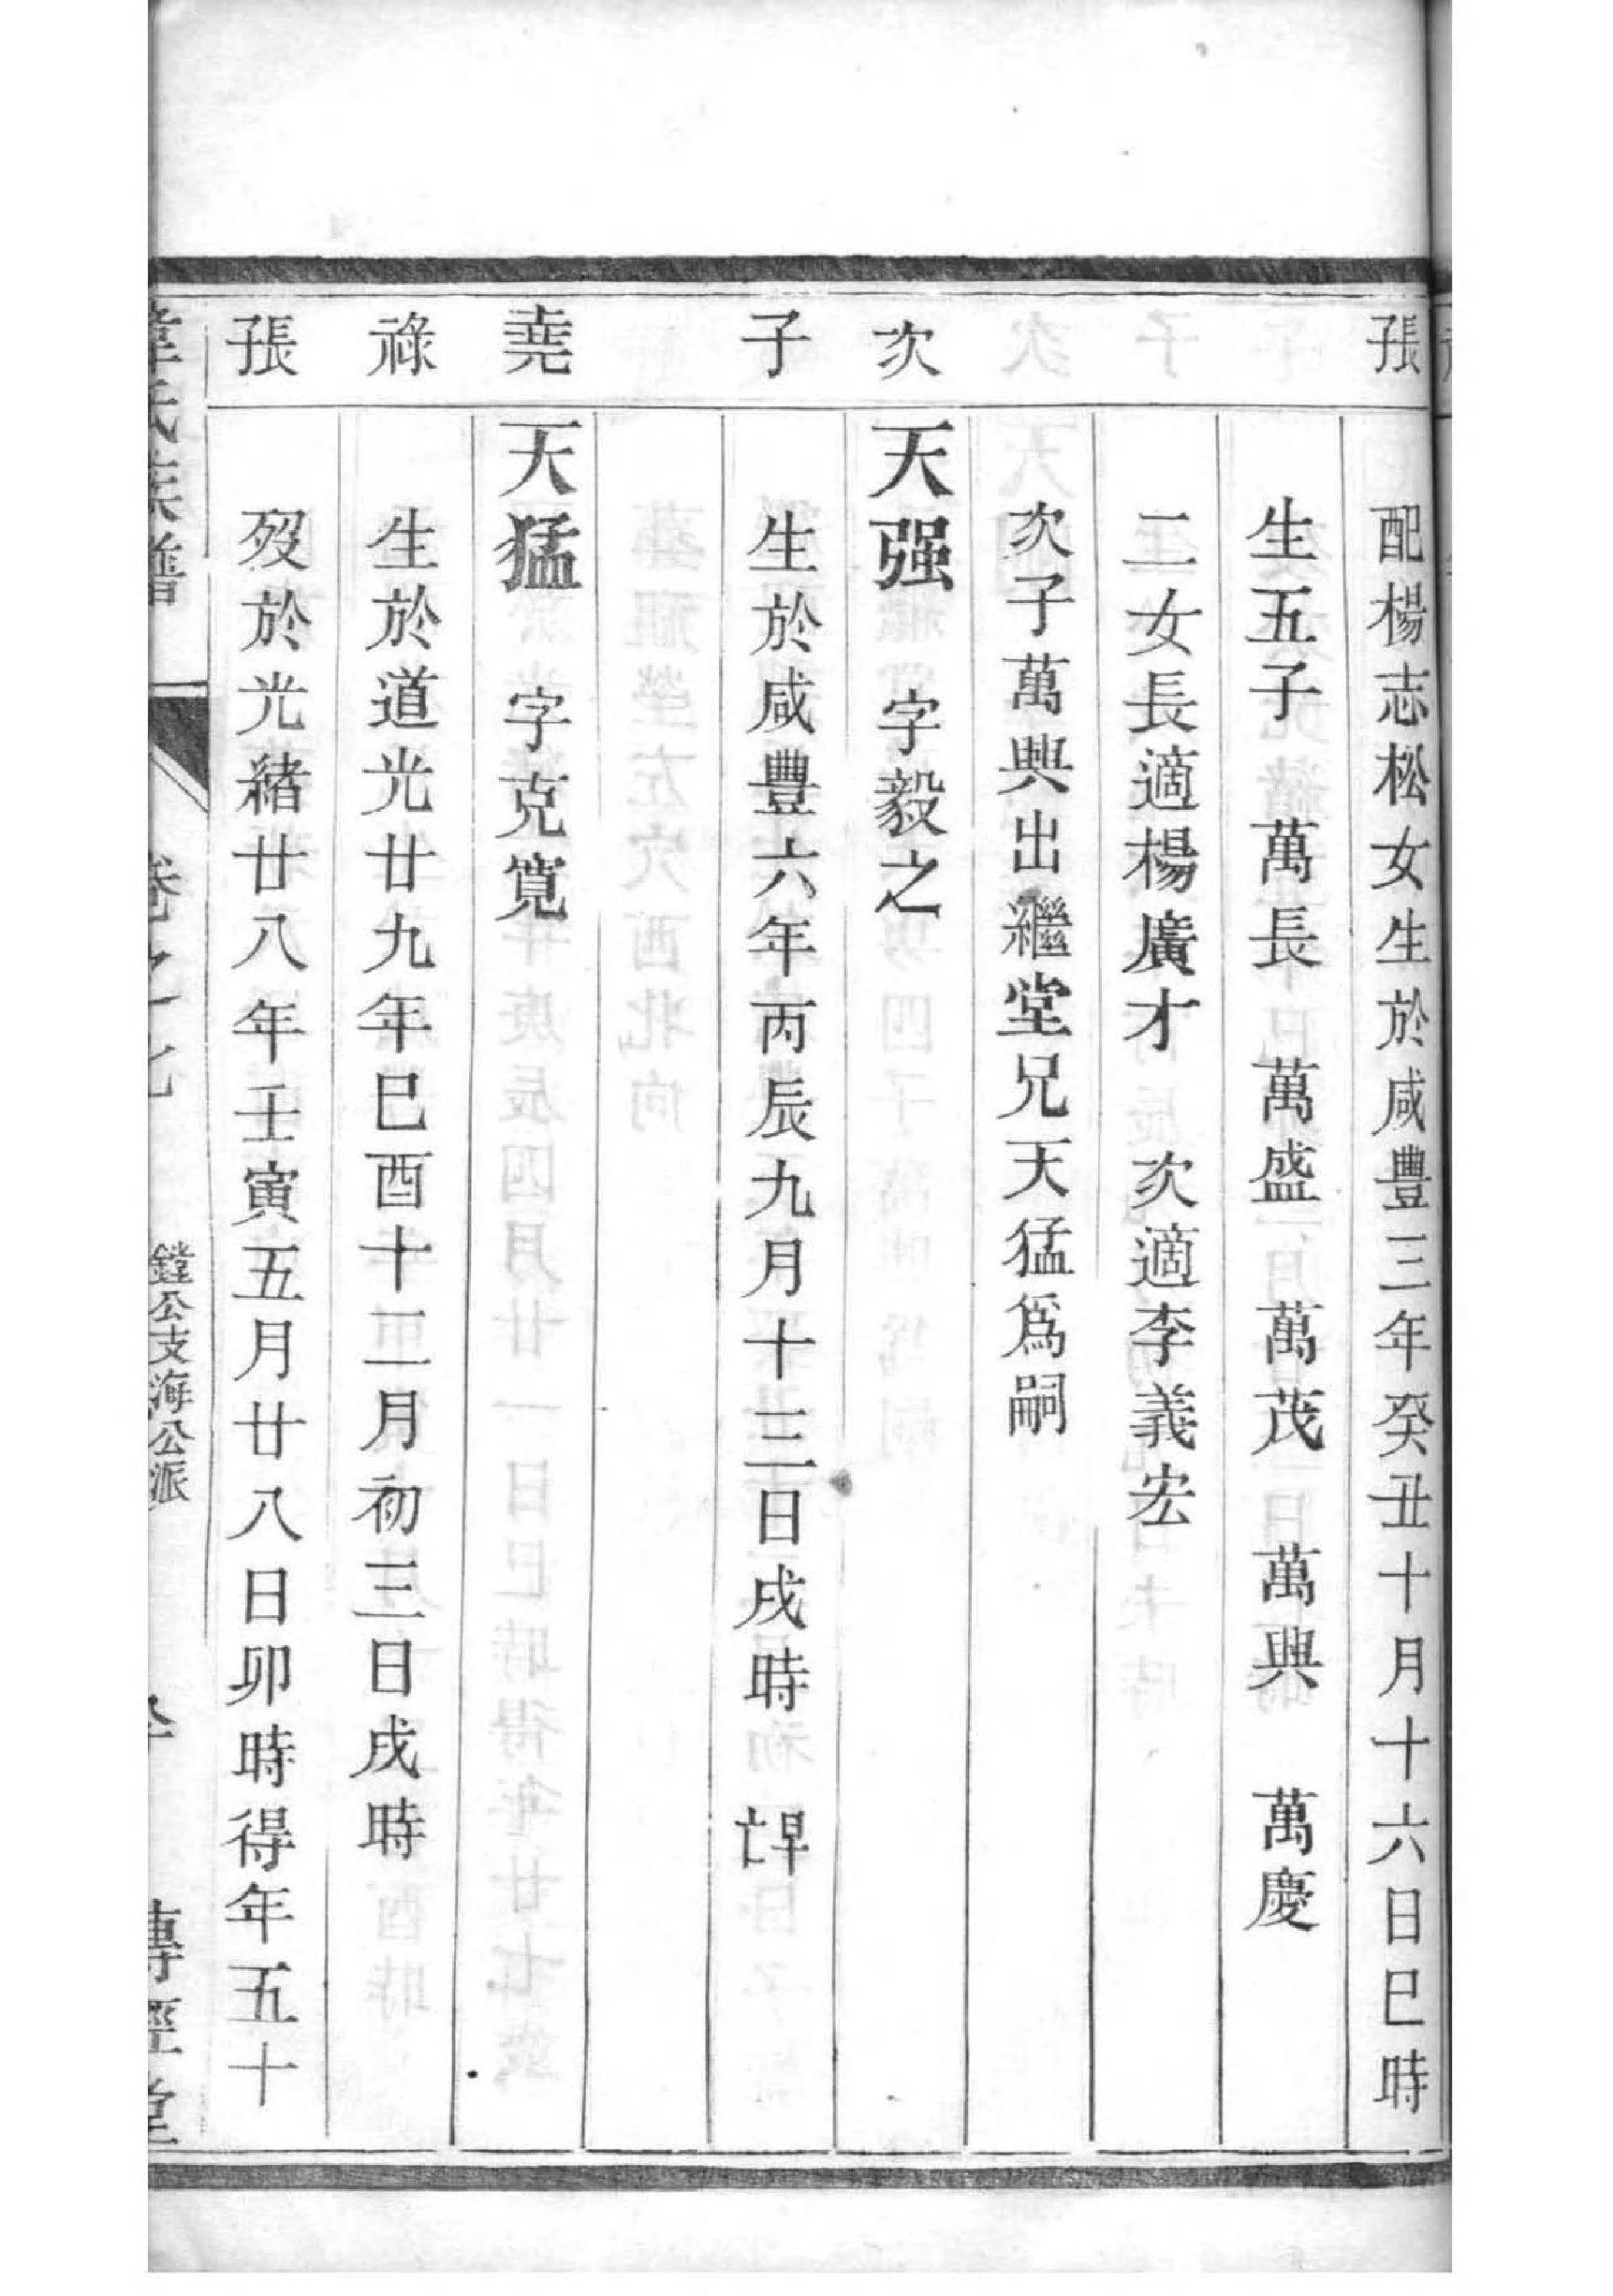 張
配楊志松女生於咸豐三年癸丑十月十六日巳時
生五子萬長 萬盛 萬茂 萬興 萬慶
二女長適楊廣才 次適李義宏
次子萬興出繼堂兄天猛爲嗣
次
天强 字毅之
子
生於咸豐六年丙辰九月十三日戌時 早亡
堯
天猛 字克寬
祿
生於道光廿九年巳酉十二月初三日戌時
張
歿於光緒廿八年壬寅五月廿八日卯時得年五十
韋氏族譜 卷之七 鏜公支海公派 傳經堂